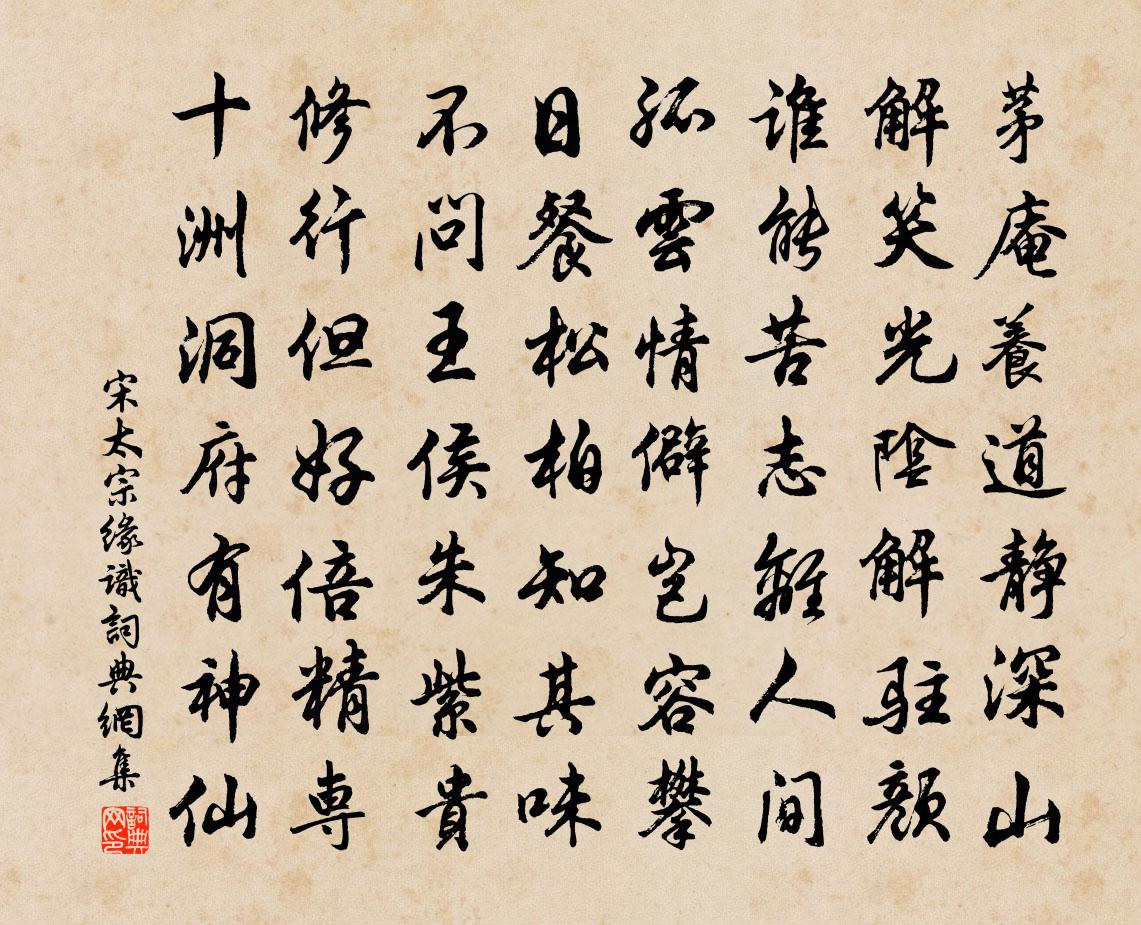 茅庵養道静深山
解笑光陰解駐顏
誰能苦志離人間
孤雲情僻豈容攀
日餐松柏知其味
不問王侯朱紫貴
修行但好倍精専
十洲洞府有神仙
宋太宗緣識詞典網集
詞典網印